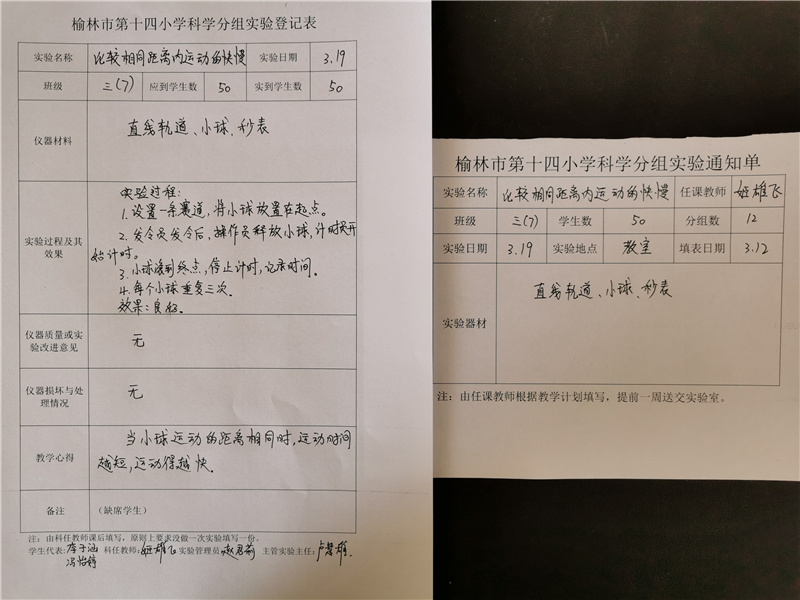 榆林市第十四小学科学分组实验登记表
实验名称 比较相同距离内运动的快慢 实验日期 3.19
班级 三(7) 应到学生数 50 实到学生数 50
仪器材料 直线轨道、小球、秒表
实验过程及其效果 实验过程:
1.设置一条赛道,将小球放置在起点。
2.发令员发令后,操作员释放小球,计时员开
始计时。
3.小球滚到终点,停止计时,记录时间。
4.每个小球重复三次。
效果:良好。
仪器质量或实验改进意见 无
仪器损坏与处理情况 无
教学心得 当小球运动的距离相同时,运动时间
越短,运动得越快。
备注 (缺席学生)
注:由科任教师课后填写,原则上要求没做一次实验填写一份。
学生代表:李子涵 科任教师:姬雄飞 实验管理员: 主管实验主任:
冯怡婷
榆林市第十四小学科学分组实验通知单
实验名称 比较相同距离内运动的快慢 任课教师 姬雄飞
班级 三(7) 学生数 50 分组数 12
实验日期 3.19 实验地点 教室 填表日期 3.12
实验器材 直线轨道、小球、秒表
注:由任课教师根据教学计划填写,提前一周送交实验室。